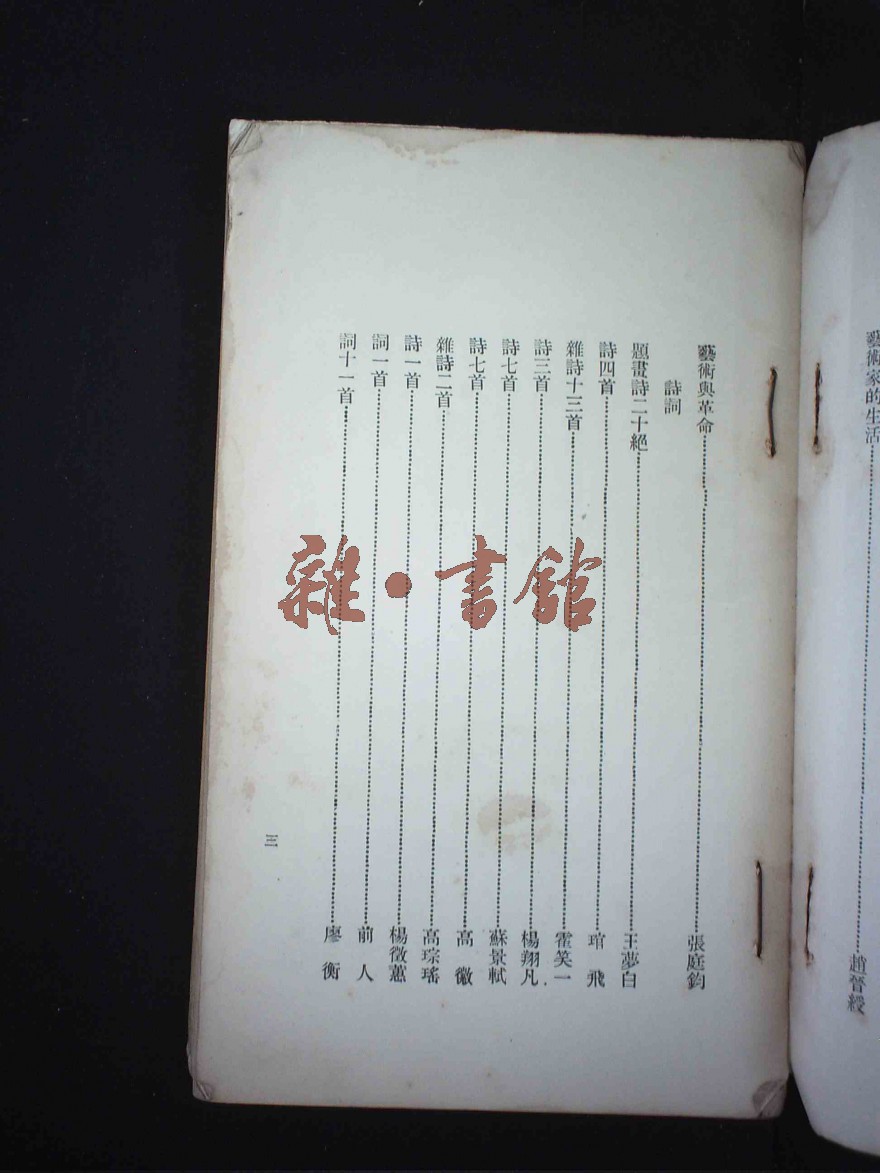 藝術家的生活⋯⋯趙晉綬
藝術與革命⋯⋯張庭鈞
詩詞
題畫詩二十絕⋯⋯王夢白
詩四首⋯⋯琯飛
雜詩十三首⋯⋯霍笑一
詩三首⋯⋯楊翔凡
詩七首⋯⋯蘇景軾
詩七首⋯⋯高徽
雜詩二首⋯⋯高琮瑤
詩一首⋯⋯楊徵蕙
詞一首⋯⋯前人
詞十一首⋯⋯廖衡
三
雜·書館